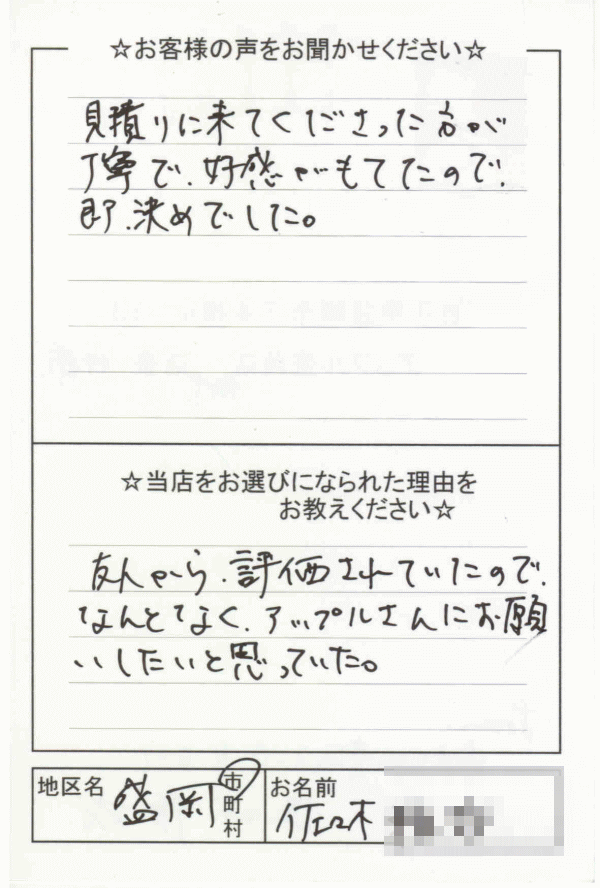 ☆お客様の声をお聞かせください☆
見積りに来てくださった方が
丁寧で、好感がもてたので、
即、決めでした。
☆当店をお選びになられた理由を
お教えください☆
友人から、評価されていたので、
なんとなく、アップルさんにお願
いしたいと思っていた。
地区名 盛岡 市 お名前 佐々木
町
村